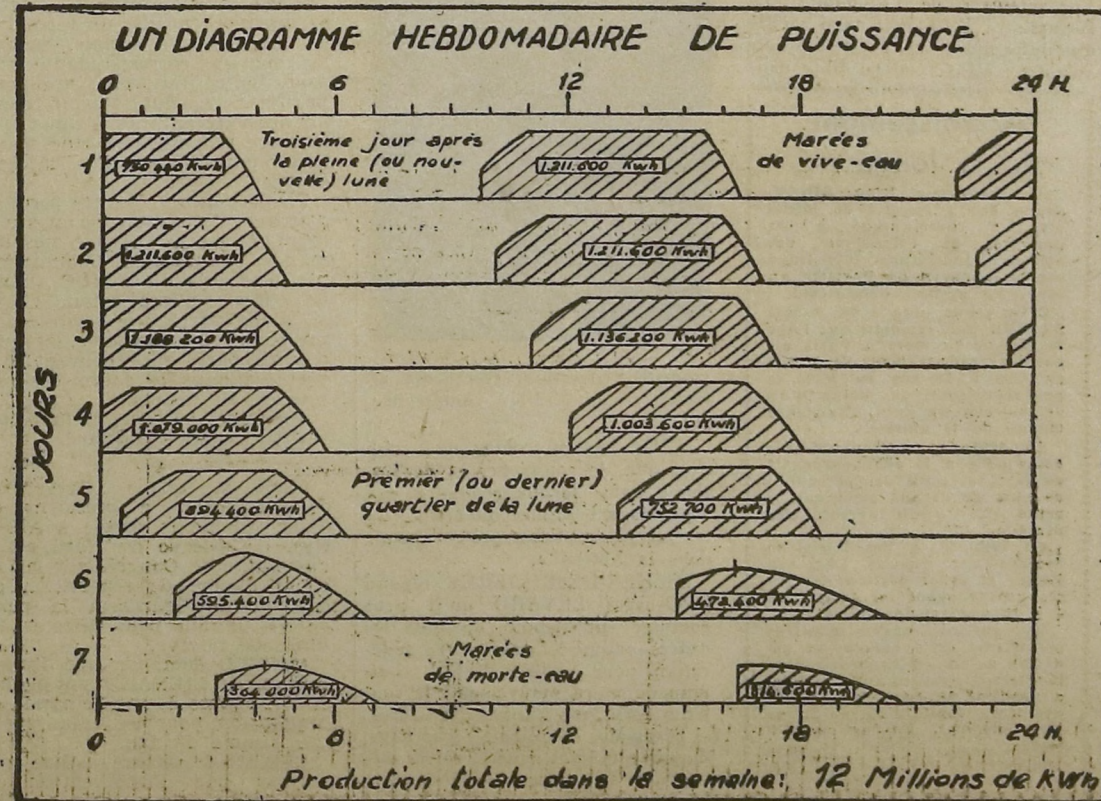 UN DIAGRAMME HEBDOMADAIRE DE PUISSANCE
0 6 12 18 24 H.
Troisième jour après
la pleine (ou nou-
velle) lune
Marées
de vive-eau
1
750 440 Kwh
1.211.600 Kwh
2
1.211.600 Kwh
1.211.600 Kwh
3
1.188.200 Kwh
1.136.200 Kwh
JOURS
4
1.079.000 Kwh
1.003.600 Kwh
5
894.400 Kwh
Prémier (ou dernier)
quartier de la lune
752 700 Kwh
6
595.400 Kwh
472.400 Kwh
7
364.000 Kwh
Marées
de morte-eau
Kwh
0 6 12 18 24 H.
Production totale dans la semaine: 12 Millions de KWh